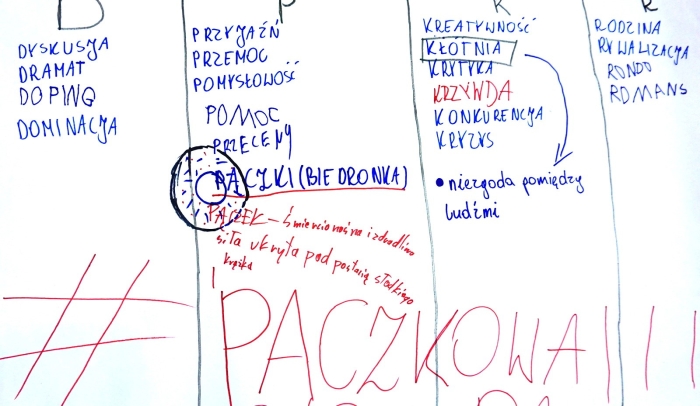 D
DYSKUSJA
DRAMAT
DOPING
DOMINACJA
P
PRZYJAŹŃ
PRZEMOC
POMYSŁOWOŚĆ
POMOC
PRZECENY
PĄCZKI (BIEDRONKA)
PĄCZEK – śmiercionośna i zdradliwa
siła ukryta pod postacią słodkiego
krążka
K
KREATYWNOŚĆ
KŁOTNIA
KRYTYKA
KRZYWDA
KONKURENCJA
KRYZYS
• niezgoda pomiędzy
ludźmi
R
RODZINA
RYWALIZACJA
RONDO
ROMANS
# PĄCZKOWA